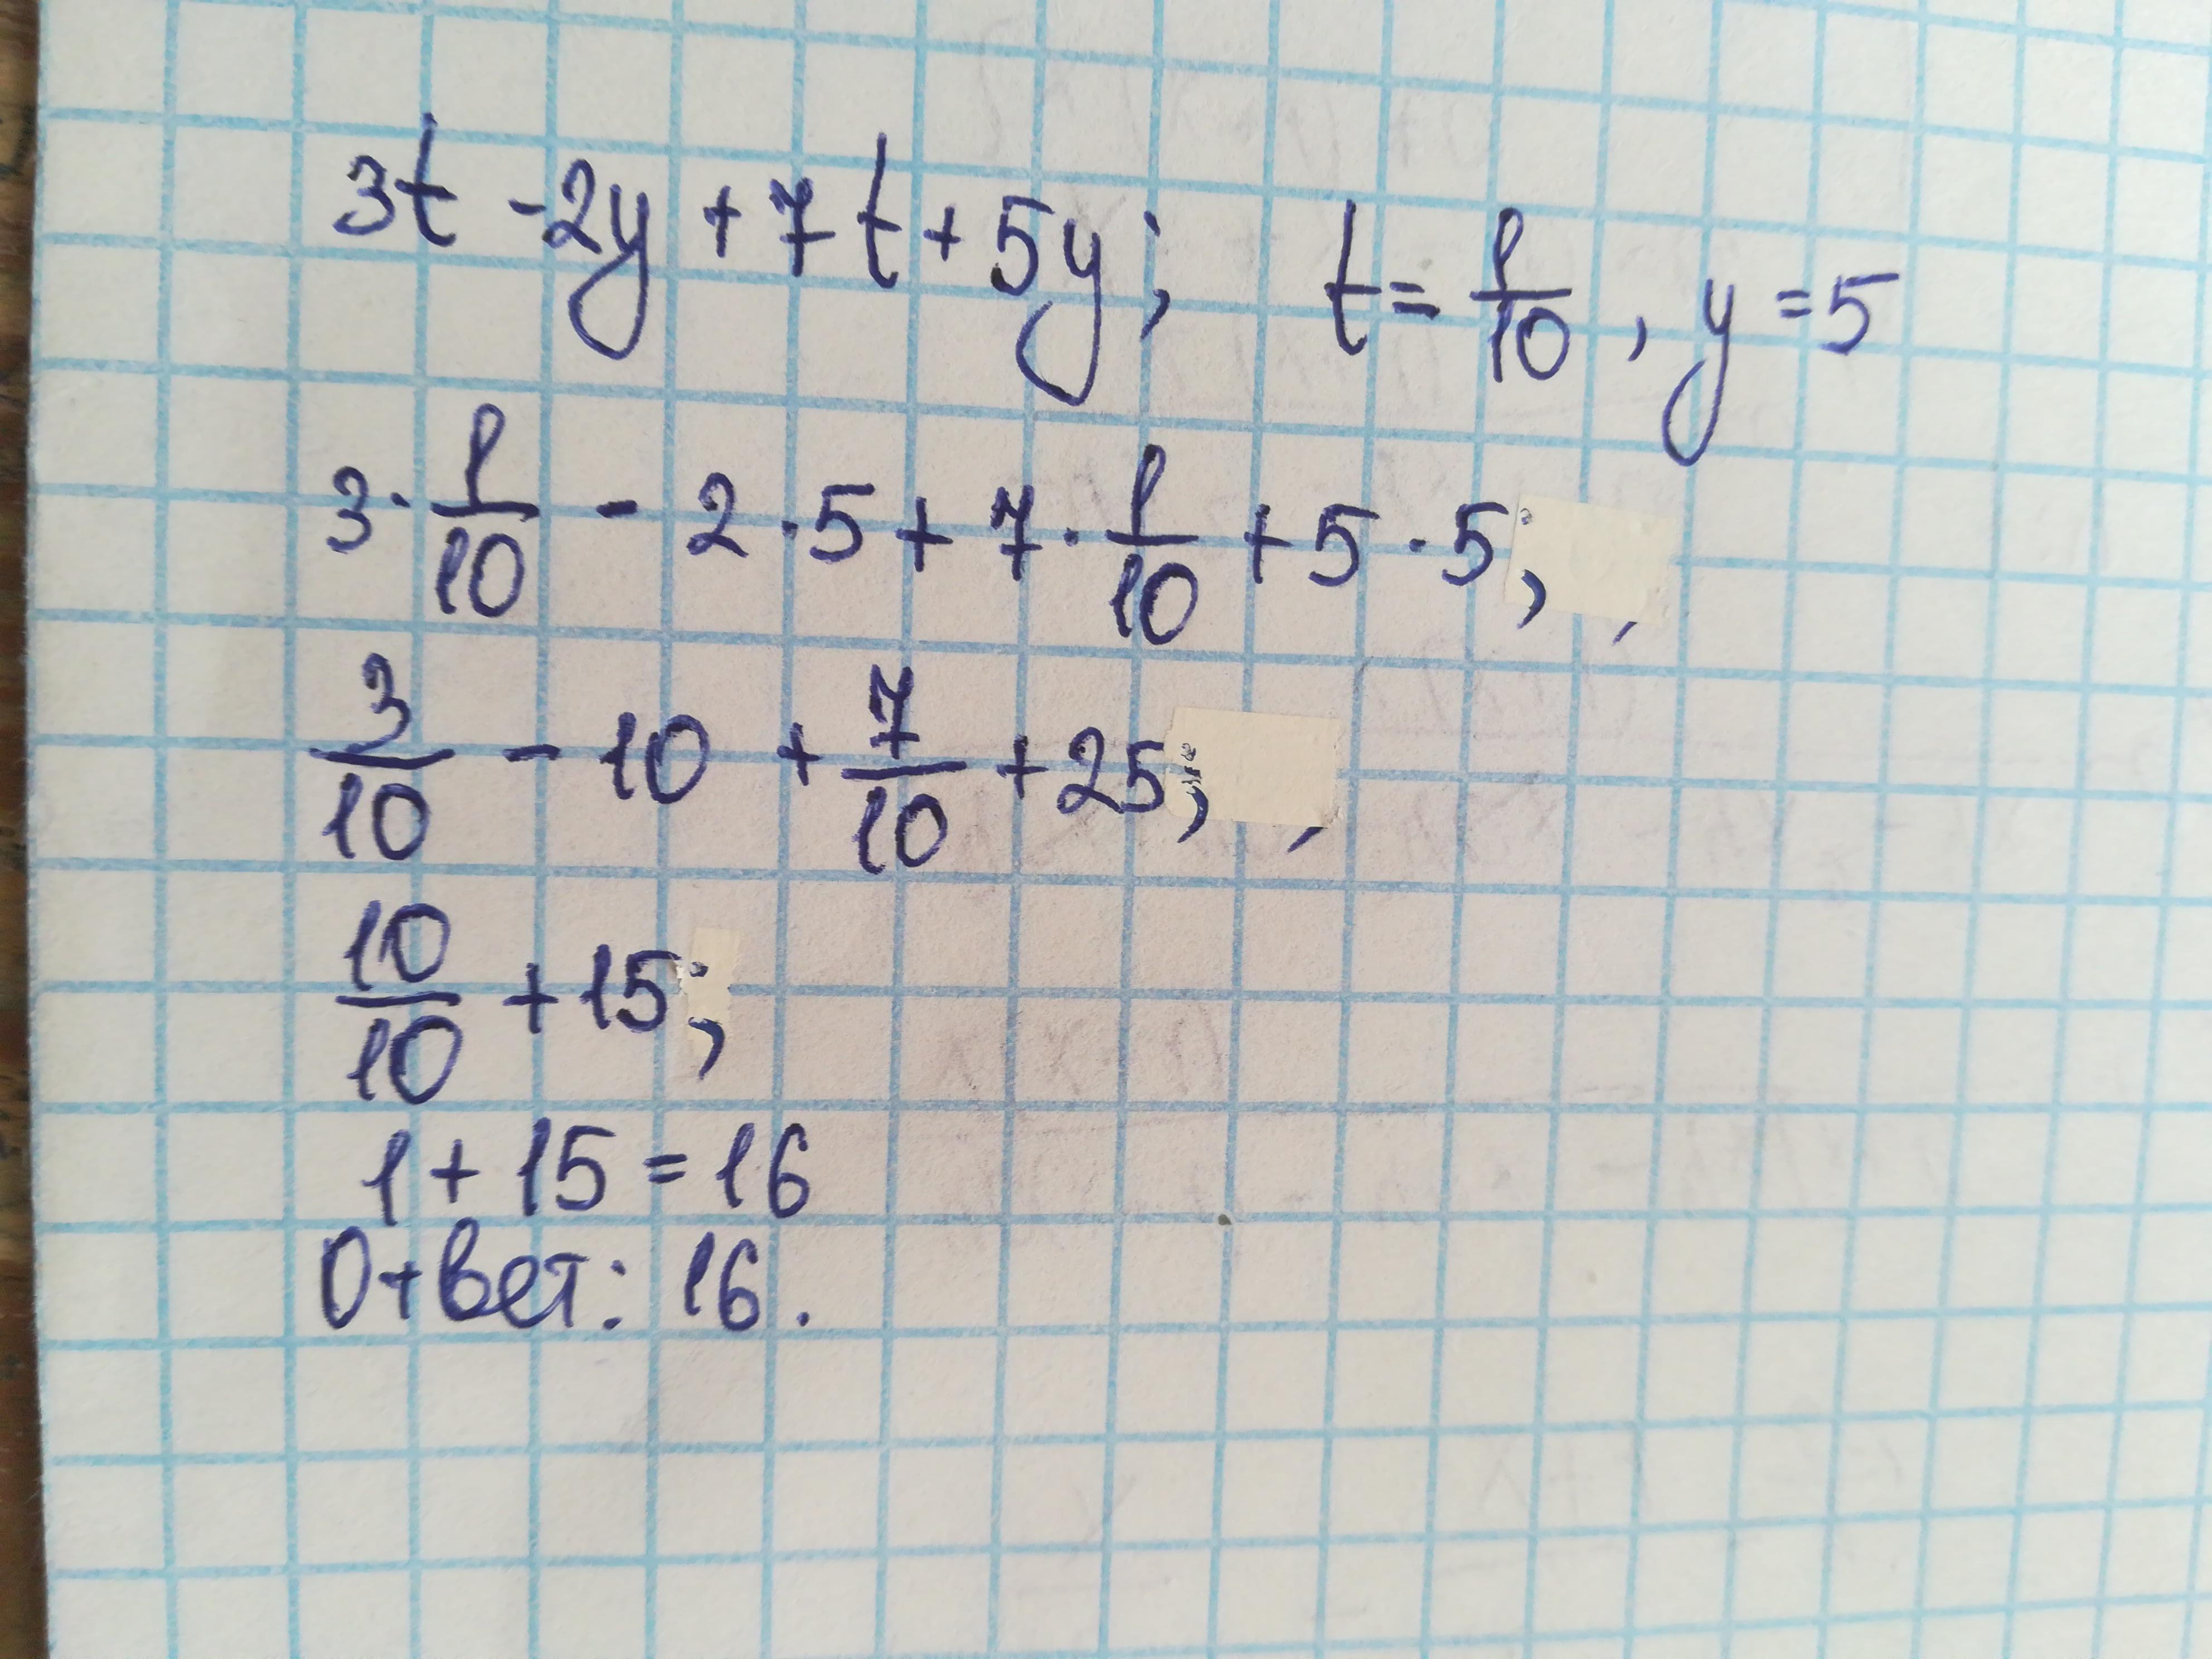 3t - 2y + 7t + 5y; t = 1/10, y = 5
3 · 1/10 - 2 · 5 + 7 · 1/10 + 5 · 5;
3/10 - 10 + 7/10 + 25;
10/10 + 15;
1 + 15 = 16
Ответ: 16.